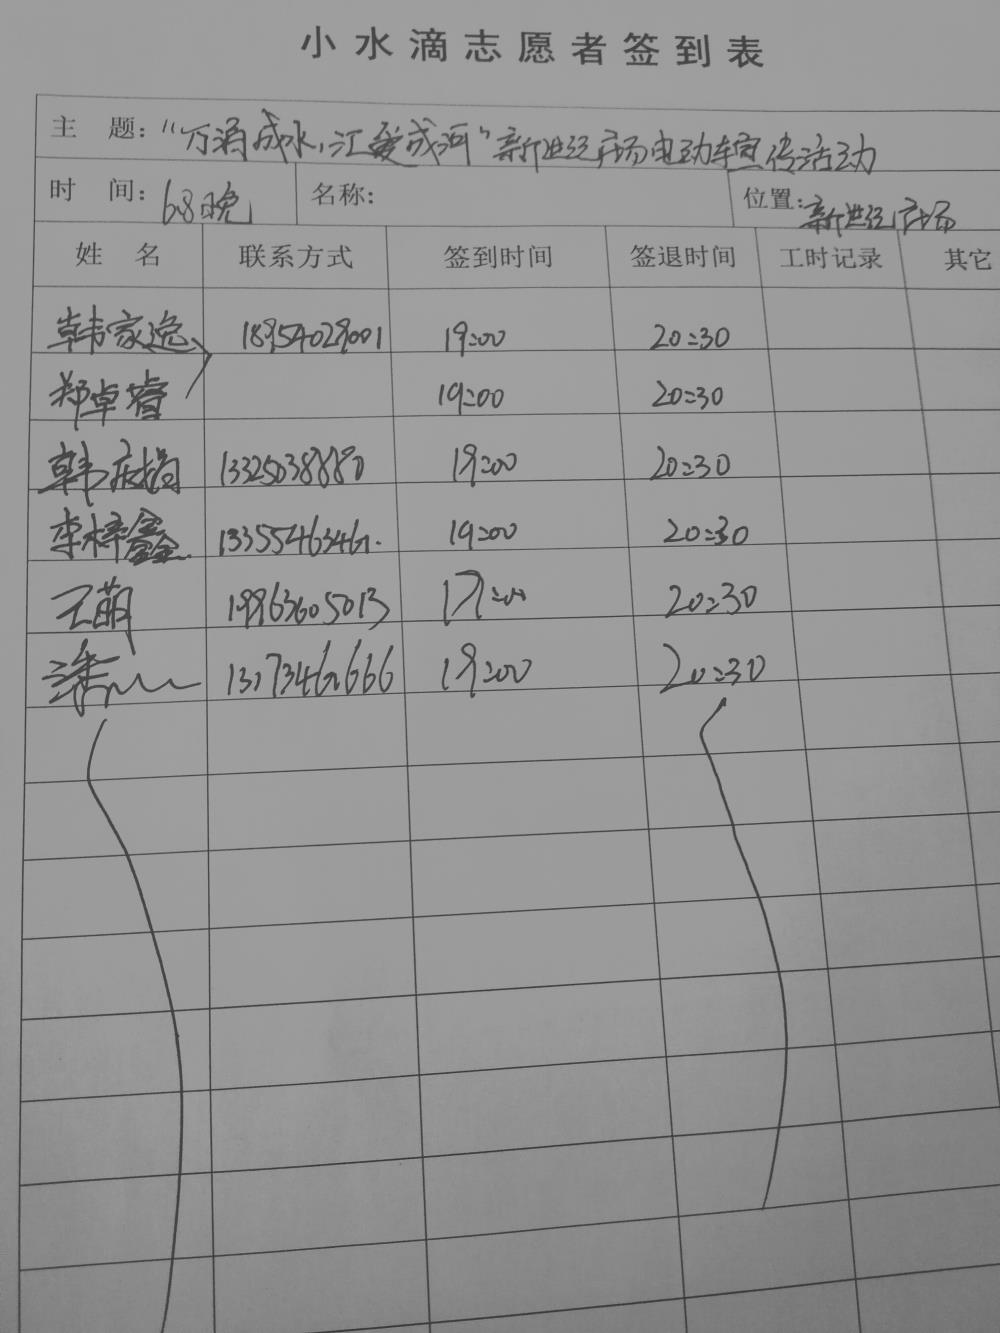 小水滴志愿者签到表
主 题: “万涓成水,汇爱成河”新世纪广场电动车宣传活动
时 间: 6.8晚 名称: 位置: 新世纪广场
姓 名 联系方式 签到时间 签退时间 工时记录 其它
韩家逸 18954029001 19:00 20:30
郑卓睿 19:00 20:30
韩庆娟 13325038880 19:00 20:30
李梓鑫 19:00 20:30
王萌 19963605013 19:00 20:30
19:00 20:30